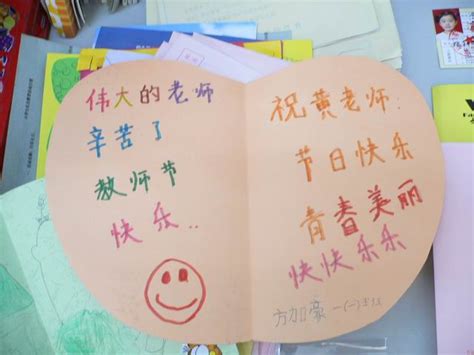 伟大的老师
辛苦了
教师节
快乐..
祝黄老师:
节日快乐
青春美丽
快快乐乐
方加豪 一(一)